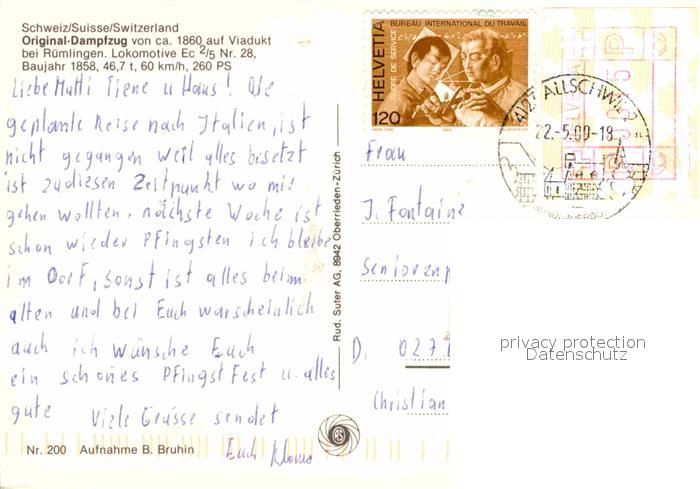 Schweiz/Suisse/Switzerland
Original-Dampfzug von ca. 1860 auf Viadukt
bei Rümlingen. Lokomotive Ec 2/5 Nr. 28,
Baujahr 1858, 46,7 t, 60 km/h, 260 PS
Liebe Mutti Tiene u Haus! Die
geplante Reise nach Italien, ist
nicht gegangen weil alles besetzt
ist zu diesen Zeitpunkt wo mir
gehen wollten, nächste Woche ist
schon wieder Pfingsten ich bleibe
im Dorf, sonst ist alles beim
alten und bei Euch warscheinlich
auch ich wünsche Euch
ein schönes Pfingstfest u. alles
gute Viele Grüsse sendet
Euch Klaus
Nr. 200 Aufnahme B. Bruhin
Rud. Suter AG, 8942 Oberrieden-Zürich
RS
BUREAU INTERNATIONAL DU TRAVAIL
HELVETIA
TIMBRE DE SERVICE
120
4123 ALLSCHWIL 2
22.-5.00-18
Frau
J. Fontain
Seniorenp
D. 027
Christian
privacy protection
Datenschutz